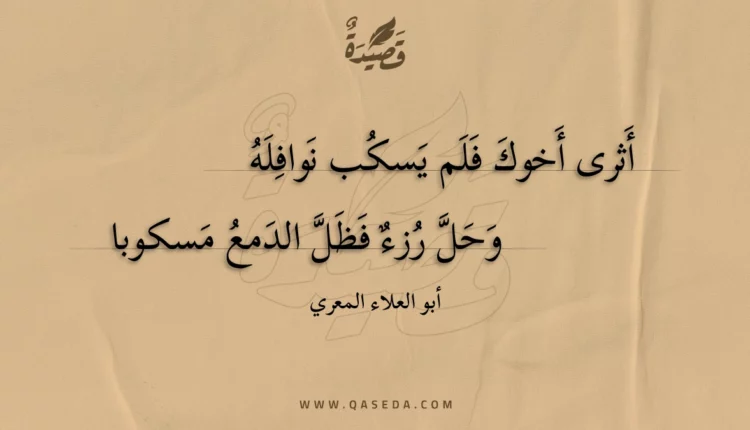 قَصِيْدَةٌ
أَثرى أَخوكَ فَلَم يَسكُب نَوافِلَهُ
وَحَلَّ رُزءٌ فَظَلَّ الدَمعُ مَسكوبا
أبو العلاء المعري
WWW.QASEDA.COM